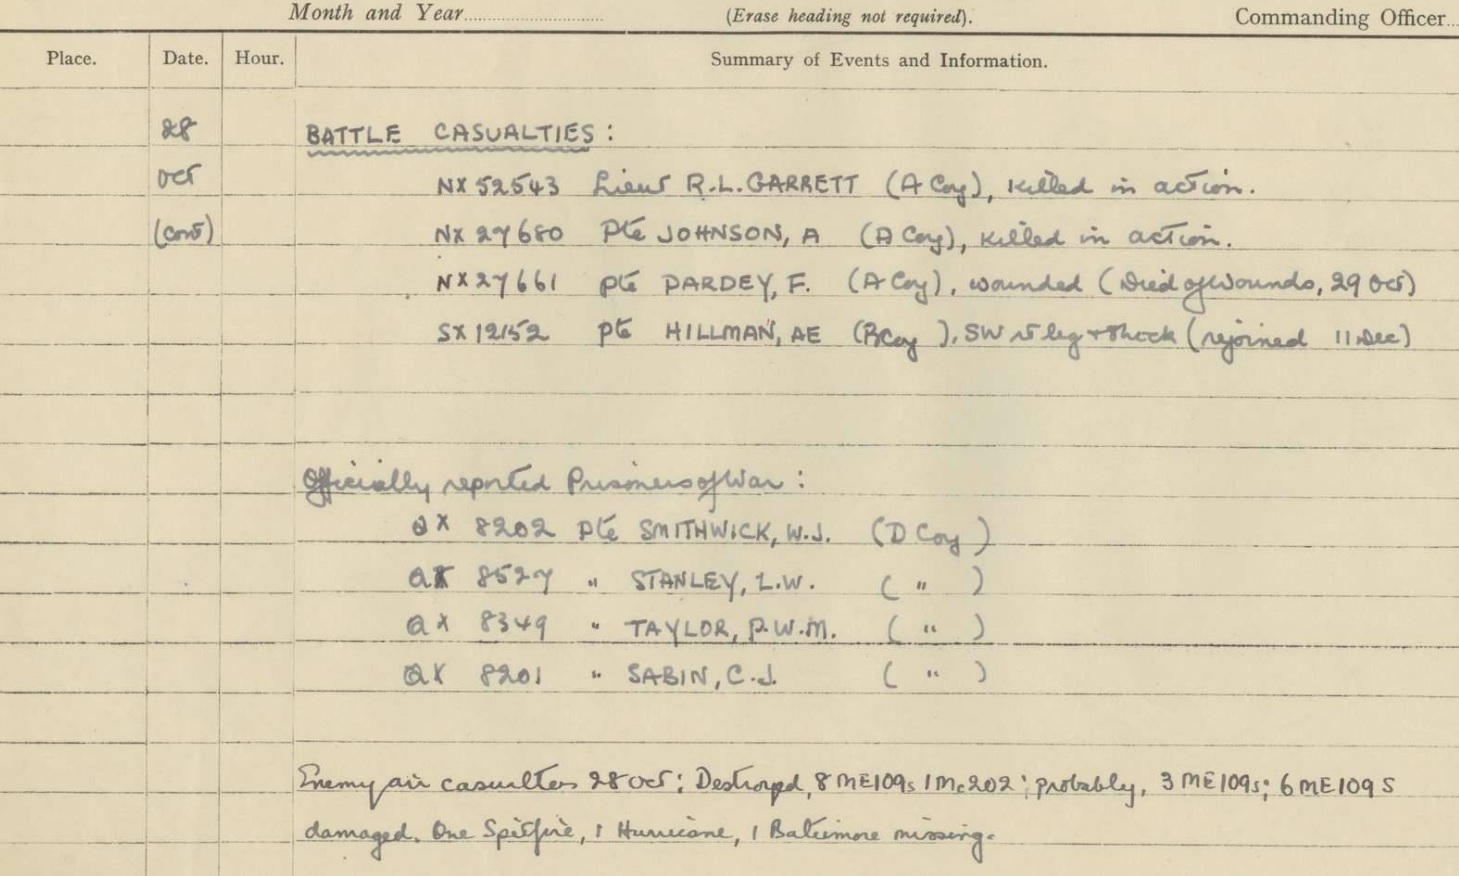 Month and Year (Erase heading not required). Commanding Officer
Place. Date. Hour. Summary of Events and Information.
28 BATTLE CASUALTIES :
Oct NX 52543 Lieut R.L. GARRETT (A Coy), killed in action.
(cont) NX 27680 Pte JOHNSON, A (A Coy), killed in action.
NX 27661 Pte PARDEY, F. (A Coy), wounded (Died of Wounds, 29 Oct)
SX 12152 Pte HILLMAN, AE (B Coy), SW leg + Shock (rejoined 11 Dec)
Officially reported Prisoners of War :
QX 8202 Pte SMITHWICK, W.J. (D Coy)
QX 8527 " STANLEY, L.W. ( " )
QX 8349 " TAYLOR, P.W.M. ( " )
QX 8201 " SABIN, C.J. ( " )
Enemy air casualties 28 Oct: Destroyed, 8 ME109s 1 Mc202; probably, 3 ME109s; 6 ME109s
damaged. One Spitfire, 1 Hurricane, 1 Baltimore missing.